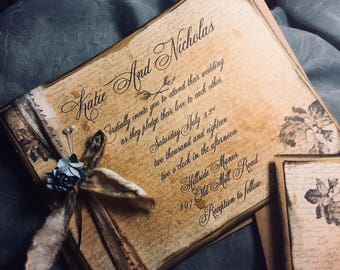 Katie And Nicholas
Cordially invite you to attend their wedding
as they pledge their love to each other.
Saturday July 23rd
two thousand and eighteen
two o'clock in the afternoon
Hillside Manor
Old Mill Road
Reception to follow